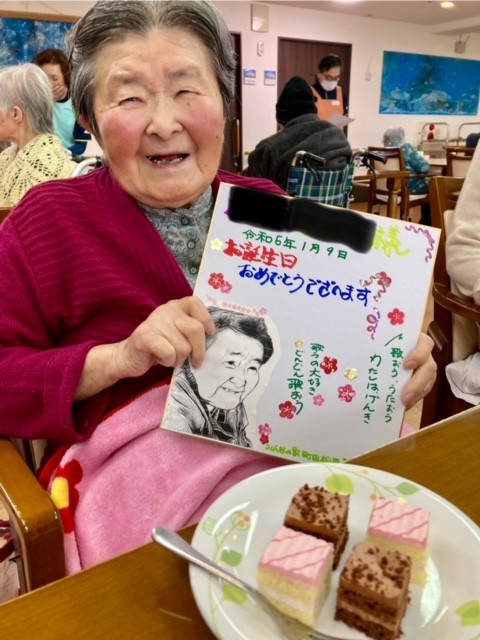 様
令和6年1月9日
お誕生日
おめでとうございます
歌おう、うたおう
わたしはげんき
歌うの大好き
どんどん歌おう